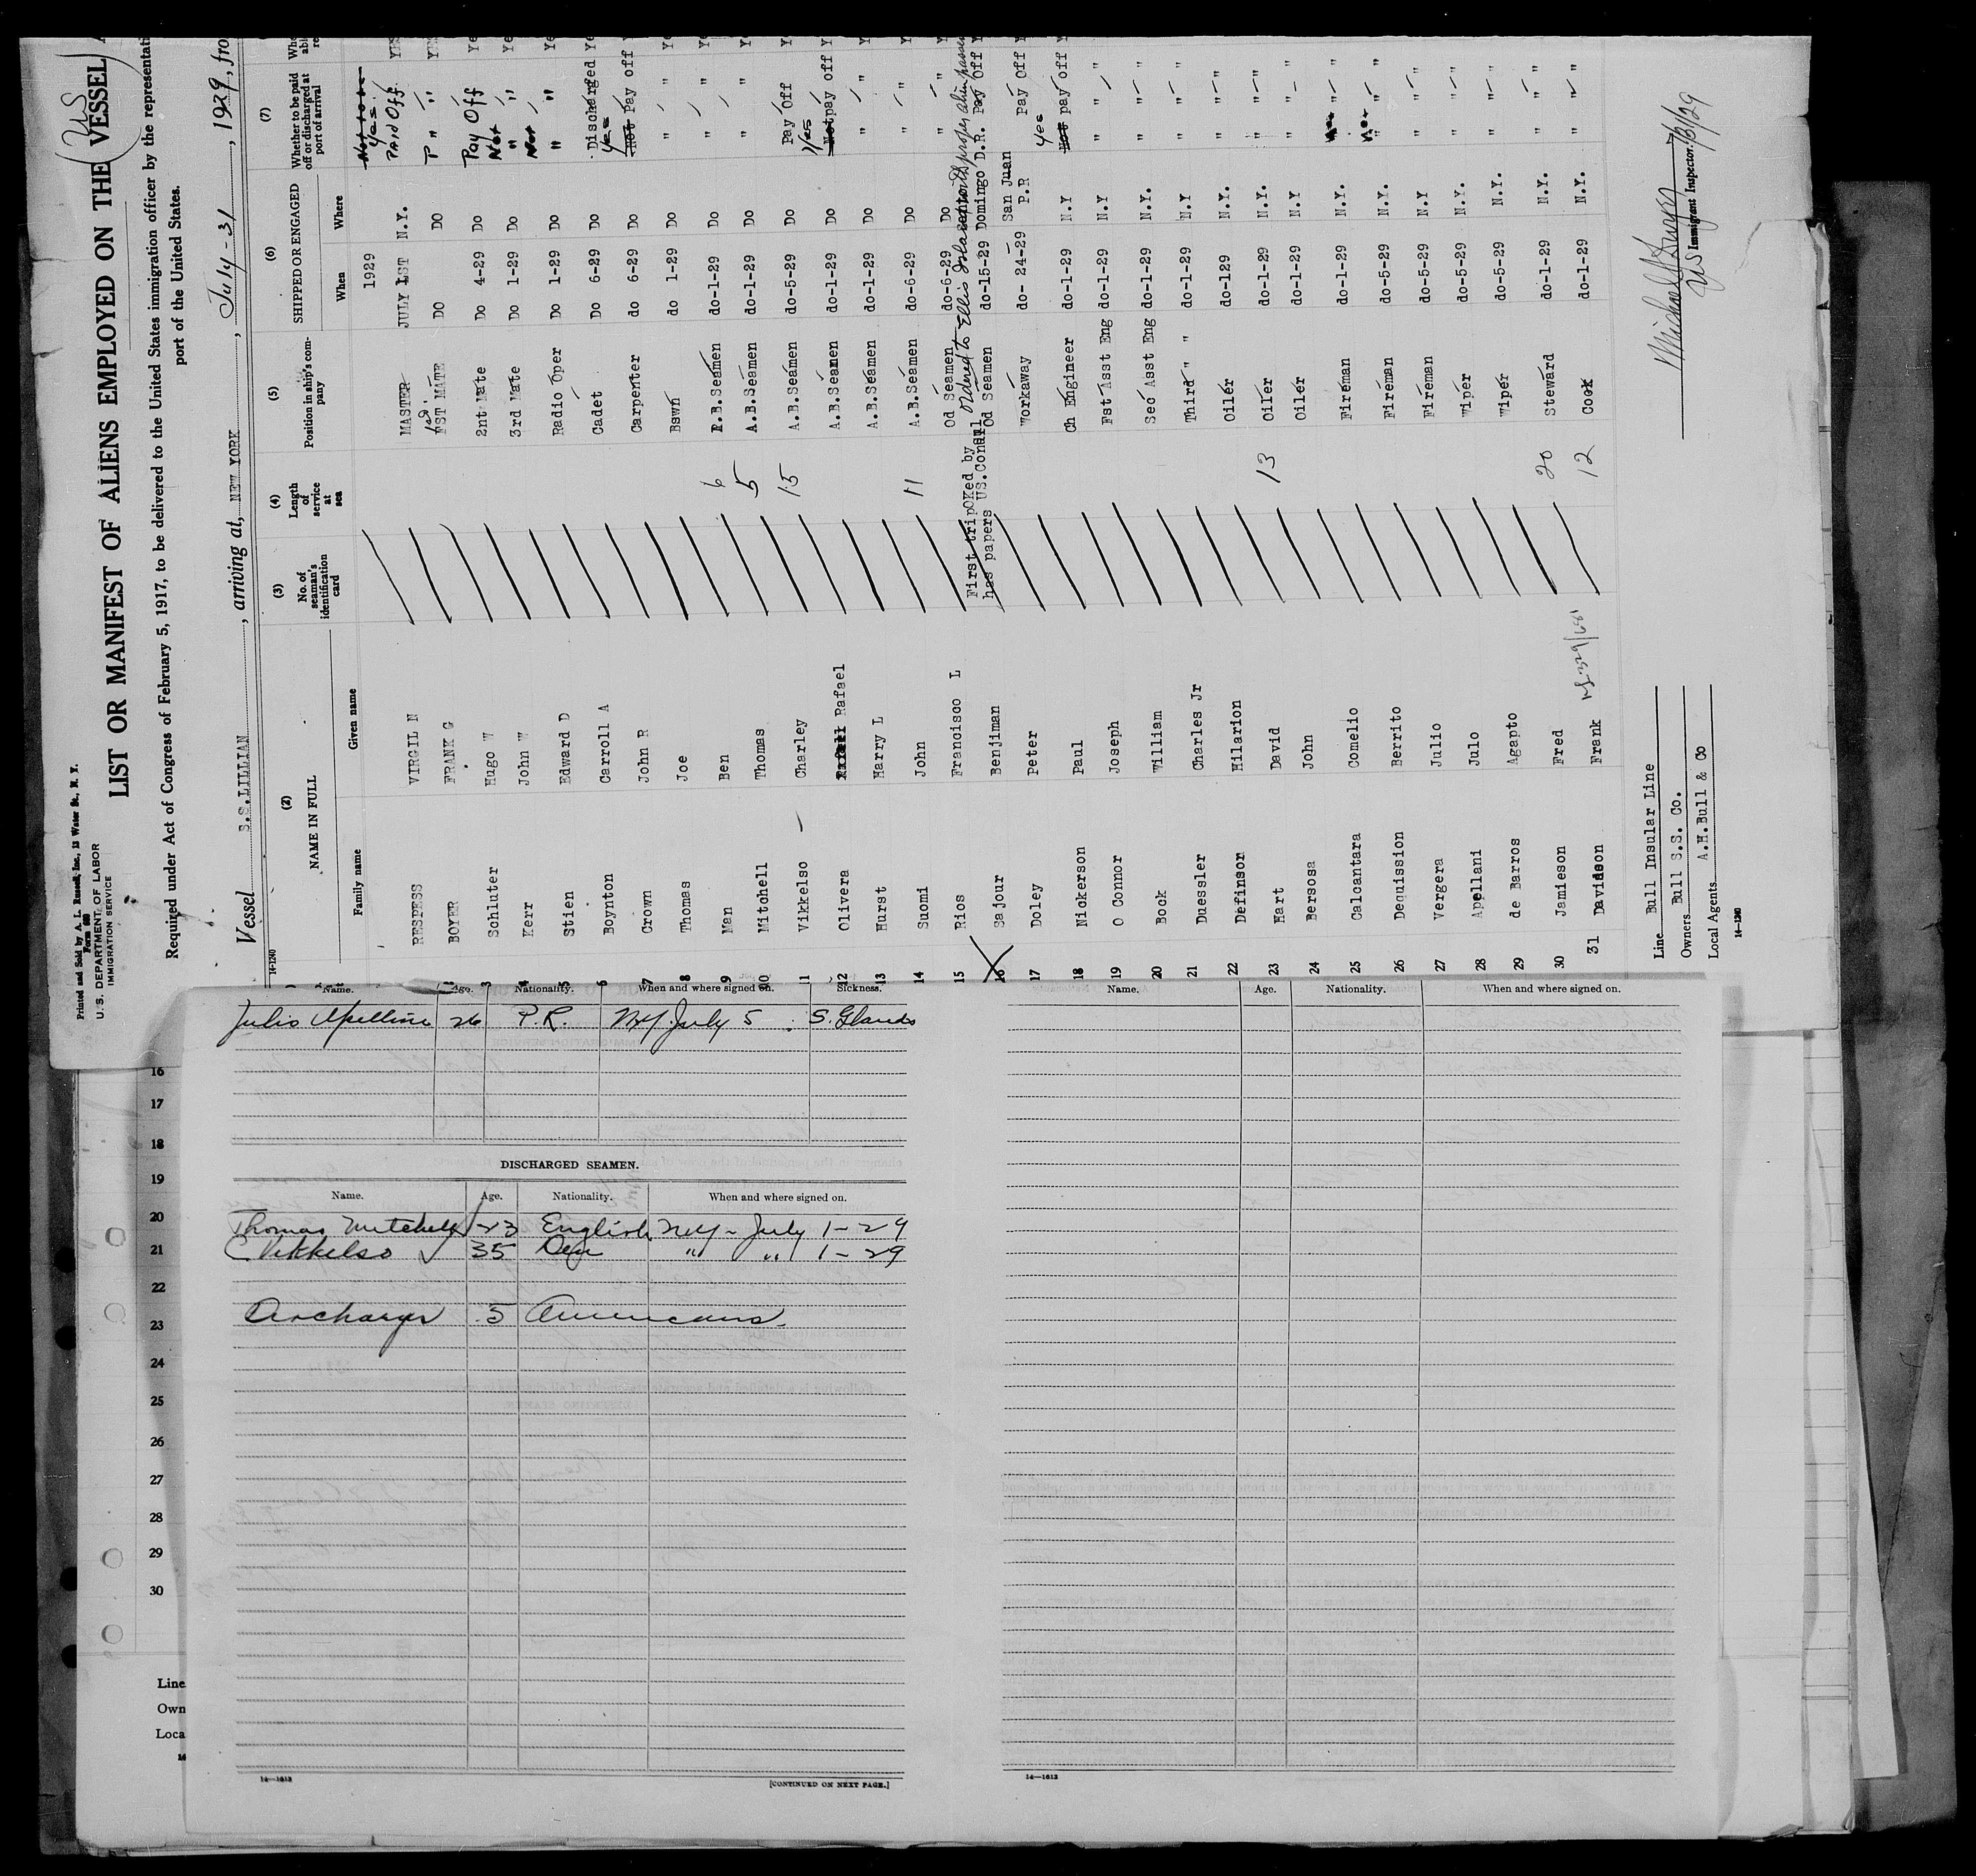 Printed and Sold by A. L. Russell, Inc., 12 Water St., N. Y.
U. S. DEPARTMENT OF LABOR
IMMIGRATION SERVICE
(US)
LIST OR MANIFEST OF ALIENS EMPLOYED ON THE VESSEL
Required under Act of Congress of February 5, 1917, to be delivered to the United States immigration officer by the representati
port of the United States.
Vessel S.S.LILLIAN, arriving at, NEW YORK, July-31, 1929, fro
14-1240
(2) (3) (4) (5) (6) (7)
NAME IN FULL No. of seaman's identification card Length of service at sea Position in ship's company SHIPPED OR ENGAGED Whether to be paid off or discharged at port of arrival
Family name Given name When Where
1929
RESPESS VIRGIL N MASTER JULY 1ST N.Y. yes Paid Off YES
BOYER FRANK G 1st FST MATE DO DO P " " YES
Schluter Hugo W 2nt Mate Do 4-29 Do Pay Off Ye
Kerr John W 3rd Mate Do 1-29 Do Not " Ye
5 Stien Edward D Radio Oper Do 1-29 Do Not " " Ye
6 Boynton Carroll A Cadet Do 6-29 Do Discharged Ye
7 Crown John R Carpenter do 6-29 Do yes Not Pay off Y
8 Thomas Joe Bswn do 1-29 Do " " Ye
9 Man Ben 6 A.B.Seamen do-1-29 Do " " Ye
10 Mitchell Thomas 5 A.B.Seamen do-1-29 Do " " Ye
11 Vikkelso - Charley 15 A.B.Seamen do-5-29 Do Pay Off Ye
12 Olivera Rafael A.B.Seamen do-1-29 Do Yes Not pay off Y
13 Hurst Harry L A.B.Seamen do-1-29 Do " " Ye
14 Suomi John 11 A.B.Seamen do-6-29 Do " " Ye
15 Rios Francisco L Od Seamen do-6-29 Do " " Ye
First trip OKed by Ordered to Ellis Island
has papers US.Consul
16 Sajour Benjiman Od Seamen do-15-29 Domingo D.R. Pay Off Y
17 Doley Peter Workaway do- 24-29 San Juan P.R Pay Off
18 Nickerson Paul Ch Engineer do-1-29 N.Y yes Not pay off Y
19 O Connor Joseph Fst Asst Eng do-1-29 N.Y " " "
20 Bock William Sec Asst Eng do-1-29 N.Y. " " "
21 Duessler Charles Jr Third " " do-1-29 N.Y " "
22 Definsor Hilarion Oiler do-129 N.Y. " "
23 Hart David 13 Oiler do-1-29 N.Y. " "
24 Bersosa John Oiler do-1-29 N.Y " "
25 Caloantara Comelio Fireman do-1-29 N.Y. " "
26 Dequission Berrito Fireman do-5-29 N.Y. " "
27 Vergera Julio Fireman do-5-29 N.Y " "
28 Apellani Julo Wiper do-5-29 N.Y. " "
29 de Barros Agapto Wiper do-5-29 N.Y. " "
30 Jamieson Fred 20 Steward do-1-29 N.Y. " "
31 Davidson Frank 12 Cook do-1-29 N.Y. " "
Line Bull Insular Line
Owners Bull S.S. Co.
Local Agents A.H.Bull & Co
14-1240
US Immigrant Inspector. 7/31/29
Name. Age. Nationality. When and where signed on. Sickness.
Julio Apelline 26 P.R. N.Y. July 5 S. Glands
DISCHARGED SEAMEN.
Name. Age. Nationality. When and where signed on.
Thomas Mitchell 23 English N.Y - July 1-29
C Vikkelso ✓ 35 Den " " 1-29
Discharge 5 Americans.
14—1613
[CONTINUED ON NEXT PAGE.]
Name. Age. Nationality. When and where signed on.
14—1613
16
17
18
19
20
21
22
23
24
25
26
27
28
29
30
Line
Own
Loca
14